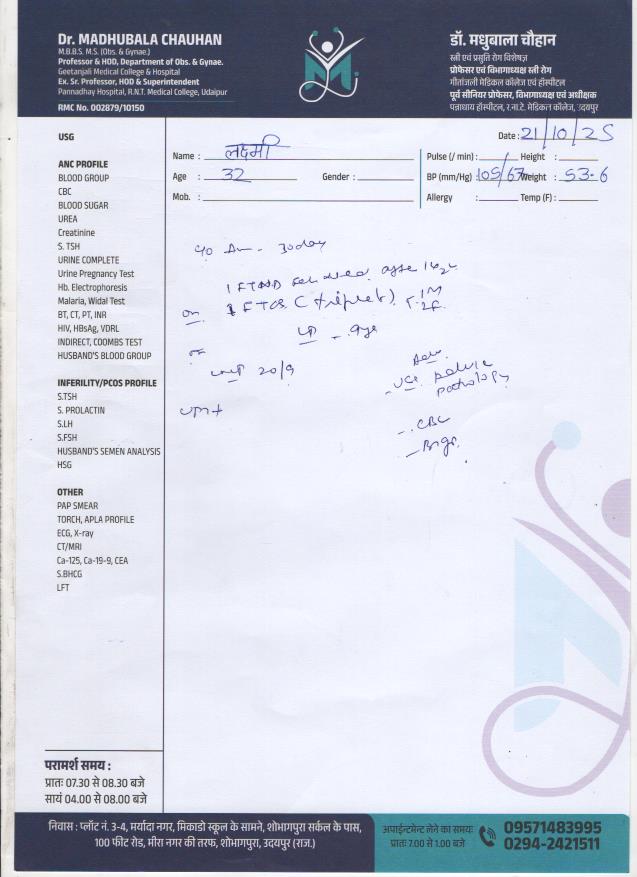 Dr. MADHUBALA CHAUHAN
M.B.B.S. M.S. (Obs. & Gynae.)
Professor & HOD, Department of Obs. & Gynae.
Geetanjali Medical College & Hospital
Ex. Sr. Professor, HOD & Superintendent
Pannadhay Hospital, R.N.T. Medical College, Udaipur
RMC No. 002879/10150
डॉ. मधुबाला चौहान
स्त्री एवं प्रसुति रोग विशेषज्ञ
प्रोफेसर एवं विभागाध्यक्ष स्त्री रोग
गीतांजली मेडिकल कॉलेज एवं हॉस्पीटल
पूर्व सीनियर प्रोफेसर, विभागाध्यक्ष एवं अधीक्षक
पन्नाधाय हॉस्पीटल, र.ना.टे. मेडिकल कॉलेज, उदयपुर
Date : 21/10/25
Name : लक्ष्मी
Pulse (/ min) : Height :
Age : 32 Gender :
BP (mm/Hg) : 105/67 Weight : 53.6
Mob. :
Allergy : Temp (F) :
USG
ANC PROFILE
BLOOD GROUP
CBC
BLOOD SUGAR
UREA
Creatinine
S. TSH
URINE COMPLETE
Urine Pregnancy Test
Hb. Electrophoresis
Malaria, Widal Test
BT, CT, PT, INR
HIV, HBsAg, VDRL
INDIRECT, COOMBS TEST
HUSBAND'S BLOOD GROUP
INFERILITY/PCOS PROFILE
S.TSH
S. PROLACTIN
S.LH
S.FSH
HUSBAND'S SEMEN ANALYSIS
HSG
OTHER
PAP SMEAR
TORCH, APLA PROFILE
ECG, X-ray
CT/MRI
Ca-125, Ca-19-9, CEA
S.BHCG
LFT
30 day
1 FTND
(triplet) 1M
2F
20/9
pelvic
pathology
- CBC
परामर्श समय :
प्रातः 07.30 से 08.30 बजे
सायं 04.00 से 08.00 बजे
निवास : प्लॉट नं. 3-4, मर्यादा नगर, मिकाडो स्कूल के सामने, शोभागपुरा सर्कल के पास,
100 फीट रोड, मीरा नगर की तरफ, शोभागपुरा, उदयपुर (राज.)
अपाईन्टमेन्ट लेने का समयः
प्रातः 7.00 से 1.00 बजे
09571483995
0294-2421511